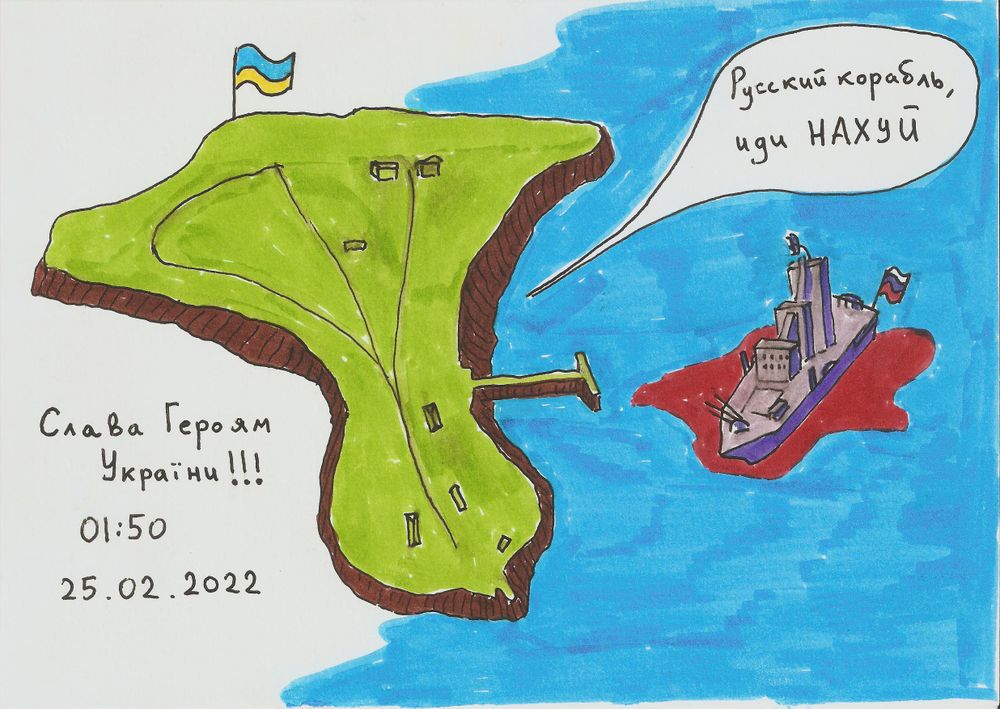 Русский корабль,
иди НАХУЙ
Слава Героям
України!!!
01:50
25.02.2022